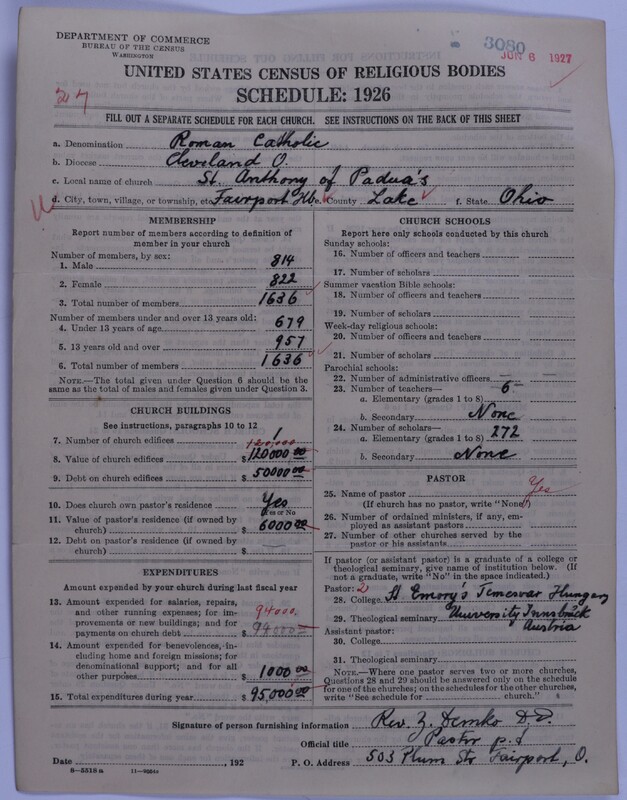 DEPARTMENT OF COMMERCE
BUREAU OF THE CENSUS
WASHINGTON
3080
JUN 6 1927
UNITED STATES CENSUS OF RELIGIOUS BODIES
SCHEDULE: 1926
27
FILL OUT A SEPARATE SCHEDULE FOR EACH CHURCH. SEE INSTRUCTIONS ON THE BACK OF THIS SHEET
a. Denomination Roman Catholic
b. Diocese Cleveland O.
c. Local name of church St. Anthony of Padua's
d. City, town, village, or township, etc. Fairport Hb. e. County Lake f. State Ohio
MEMBERSHIP
Report number of members according to definition of
member in your church
Number of members, by sex:
1. Male 814
2. Female 822
3. Total number of members 1636
Number of members under and over 13 years old:
4. Under 13 years of age 679
5. 13 years old and over 957
6. Total number of members 1636
NOTE.—The total given under Question 6 should be the
same as the total of males and females given under Question 3.
CHURCH BUILDINGS
See instructions, paragraphs 10 to 12
7. Number of church edifices 1
120,000
8. Value of church edifices $120000 00
9. Debt on church edifices $50000 00
10. Does church own pastor's residence Yes
Yes or No
11. Value of pastor's residence (if owned by
church) $6000 00
12. Debt on pastor's residence (if owned by
church) $ —
EXPENDITURES
Amount expended by your church during last fiscal year
13. Amount expended for salaries, repairs,
and other running expenses; for im-
provements or new buildings; and for
payments on church debt $94000 00
94000.
14. Amount expended for benevolences, in-
cluding home and foreign missions; for
denominational support; and for all
other purposes $1000 00
15. Total expenditures during year $95,000 00
CHURCH SCHOOLS
Report here only schools conducted by this church
Sunday schools:
16. Number of officers and teachers
17. Number of scholars
Summer vacation Bible schools:
18. Number of officers and teachers
19. Number of scholars
Week-day religious schools:
20. Number of officers and teachers
21. Number of scholars
Parochial schools:
22. Number of administrative officers —
23. Number of teachers—
a. Elementary (grades 1 to 8) 6
b. Secondary None
24. Number of scholars—
a. Elementary (grades 1 to 8) 272
b. Secondary None
PASTOR
25. Name of pastor Yes
(If church has no pastor, write "None")
26. Number of ordained ministers, if any, em-
ployed as assistant pastors
27. Number of other churches served by the
pastor or his assistants
If pastor (or assistant pastor) is a graduate of a college or
theological seminary, give name of institution below. (If
not a graduate, write "No" in the space indicated.)
Pastor: 2
28. College St. Emery's Temesvar Hungary
29. Theological seminary University Innsbruck
Austria
Assistant pastor:
30. College
31. Theological seminary
NOTE.—Where one pastor serves two or more churches,
Questions 28 and 29 should be answered only on the schedule
for one of the churches; on the schedules for the other churches,
write "See schedule for church."
Signature of person furnishing information Rev. Z. Demko D.D.
Official title Pastor
Date , 192
P. O. Address 503 Plum Str Fairport, O.
8—5518 a